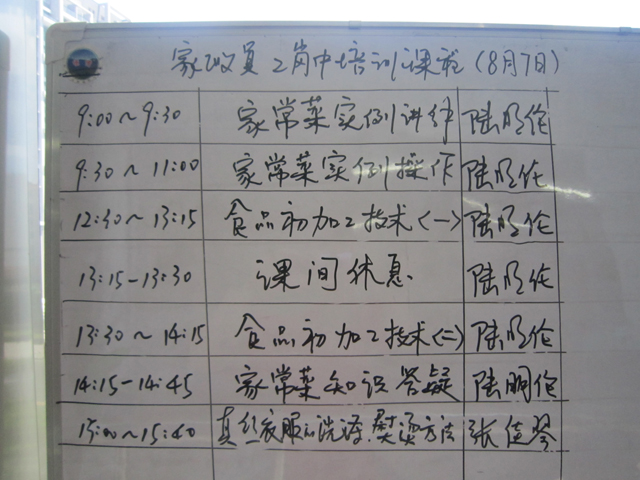 家政员上岗中培训课程(8月7日)
9:00~9:30 家常菜实例讲解 陆明伦
9:30~11:00 家常菜实例操作 陆明伦
12:30~13:15 食品初加工技术(一) 陆明伦
13:15-13:30 课间休息 陆明伦
13:30~14:15 食品初加工技术(二) 陆明伦
14:15-14:45 家常菜知识答疑 陆明伦
15:00~15:40 真丝衣服的洗涤、熨烫方法 张佳琴